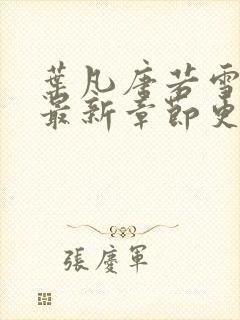 葉凡唐若雪
最新章節更
張慶軍